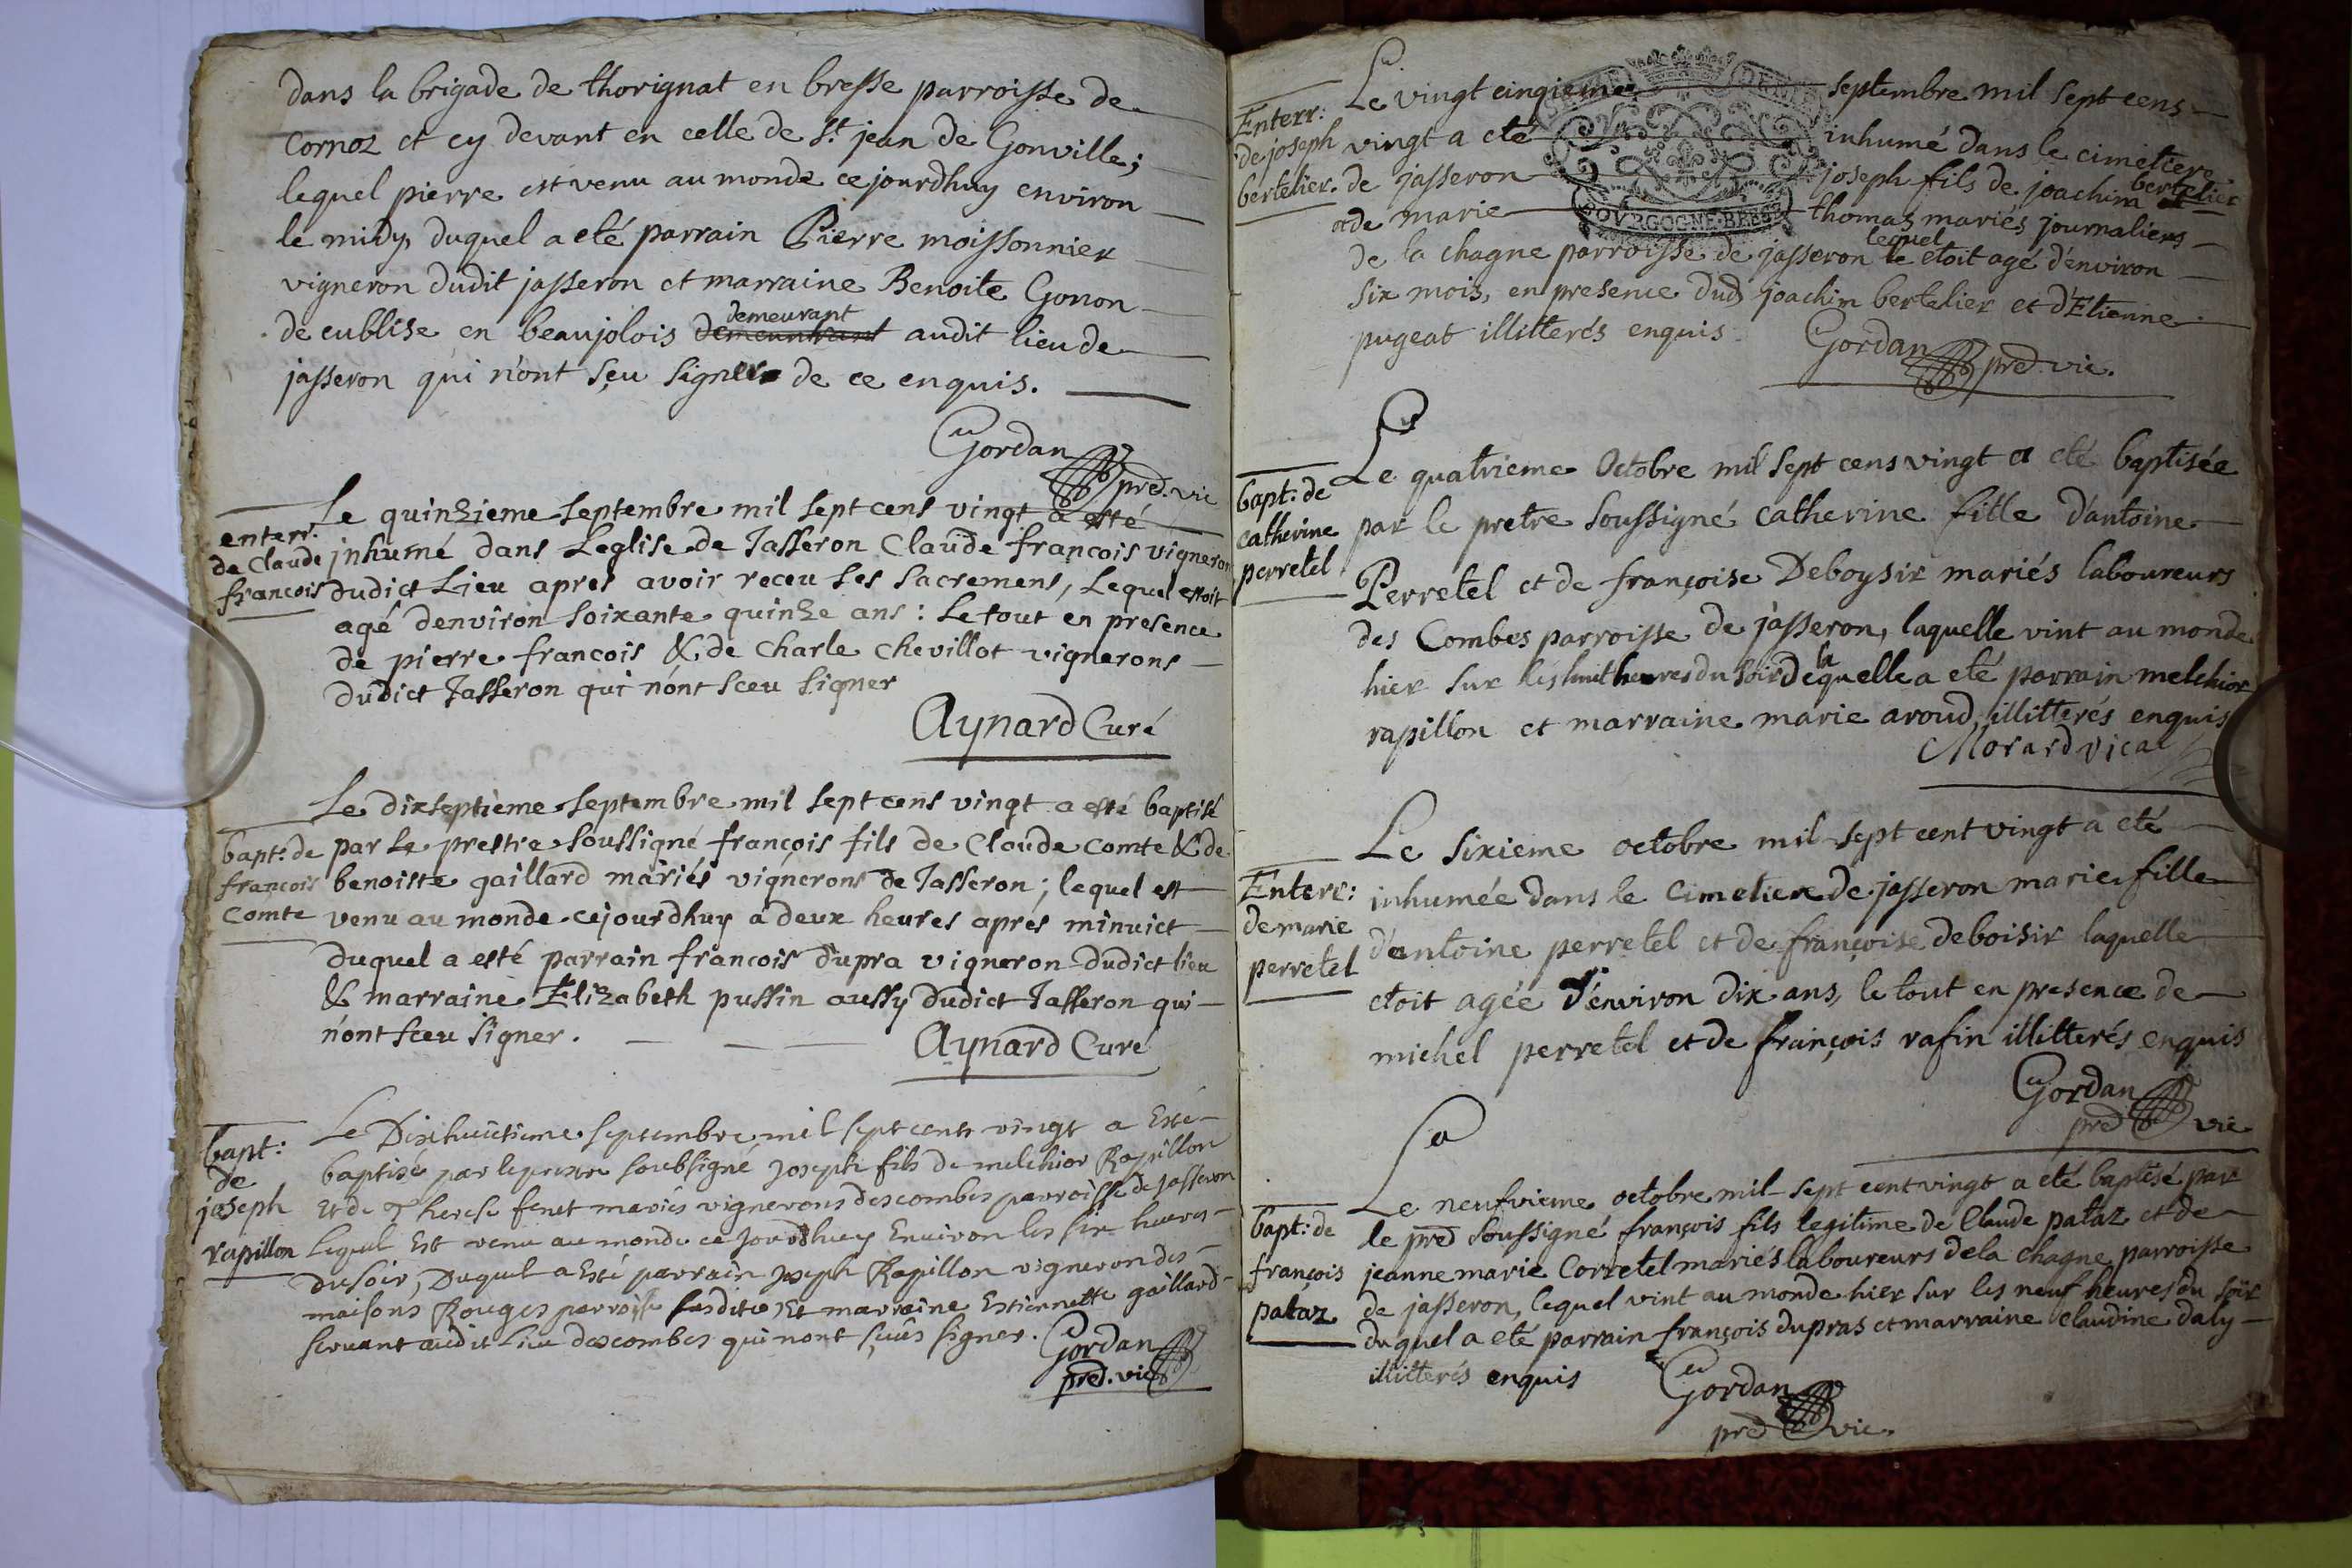 dans la brigade de thorignat en bresse parroisse de
Cornoz et cy devant en celle de St jean de Gonville;
lequel pierre est venu au monde ce jourdhuy environ
le midy, duquel a eté parrain Pierre moissonnier
vigneron dudit jasseron et marraine Benoite Gonon
de cublise en beaujolois demeurant audit lieu de
jasseron qui n'ont sçu signer de ce enquis.
Gordan
pred. vic
enterr.
de Claude
françois
Le quinzieme septembre mil sept cens vingt a esté
jnhumé dans Leglise de Jasseron Claude françois vigneron
dudict Lieu apres avoir receu ses sacremens, Lequel estoit
agé denviron soixante quinze ans : Le tout en presence
de pierre francois & de Charle Chevillot vignerons
dudict Jasseron qui n'ont sceu signer
Aynard Curé
bapt: de
françois
Comte
Le dixseptieme septembre mil sept cens vingt a esté baptisé
par Le prestre soussigné françois fils de Claude Comte & de
benoiste gaillard mariés vignerons de Jasseron; lequel est
venu au monde cejourdhuy a deux heures aprés minuict
duquel a esté parrain francois dupra vigneron dudict lieu
& marraine Elizabeth pussin aussy dudict Jasseron qui
n'ont sceu signer.
Aynard Curé
bapt:
de
joseph
rapillon
Le Dixhuictieme septembre mil sept cents vingt a Esté
baptisé par le prestre soubsigné Joseph fils de melchior Rapillon
Et de Therese fenet mariés vignerons des combes parroisse de Jasseron
Lequel Est venu au monde ce Jourdhuy Environ les six heures
du soir, Duquel a Esté parrain Joseph Rapillon vigneron des
maisons Rouges parroisse susdite, Et marraine Estiennette gaillard
servant audit Lieu des combes qui nont sçeus signer. Gordan
pred. vic
Enterr:
de joseph
bertelier.
Le vingt cinqieme septembre mil sept cens
vingt a eté inhumé dans le cimetiere
de jasseron joseph fils de joachim bertelier
et de marie thomas mariés journaliers
de la chagne parroisse de jasseron lequel etoit agé d'environ
six mois, en presence dud joachim bertelier et d'Etienne
pugeat illitterés enquis. Gordan pred. vic.
BOVRGOGNE BRESSE
bapt: de
catherine
perretel
Le quatrieme Octobre mil sept cens vingt a eté baptisée
par le pretre soussigné catherine fille d'antoine
Perretel et de françoise Deboysir mariés laboureurs
des Combes parroisse de jasseron, laquelle vint au monde
hier sur les huit heures du soir de laquelle a eté parrain melchior
rapillon et marraine marie aroud, illitterés enquis
Morard vica
Enterr:
de marie
perretel
Le sixieme octobre mil sept cent vingt a eté
inhumée dans le Cimetiere de jasseron marie fille
d'antoine perretel et de françoise deboisir laquelle
etoit agée d'environ dix ans, le tout en presence de
michel perretel et de françois rafin illitterés enquis
Gordan
pred vic
bapt: de
françois
pataz
Le neufvieme octobre mil sept cent vingt a eté baptisé par
le pred soussigné françois fils legitime de Claude pataz et de
jeanne marie Corretel mariés laboureurs de la chagne parroisse
de jasseron, lequel vint au monde hier sur les neuf heures du soir
duquel a eté parrain françois dupras et marraine Claudine daly
illitterés enquis Gordan
pred vic.